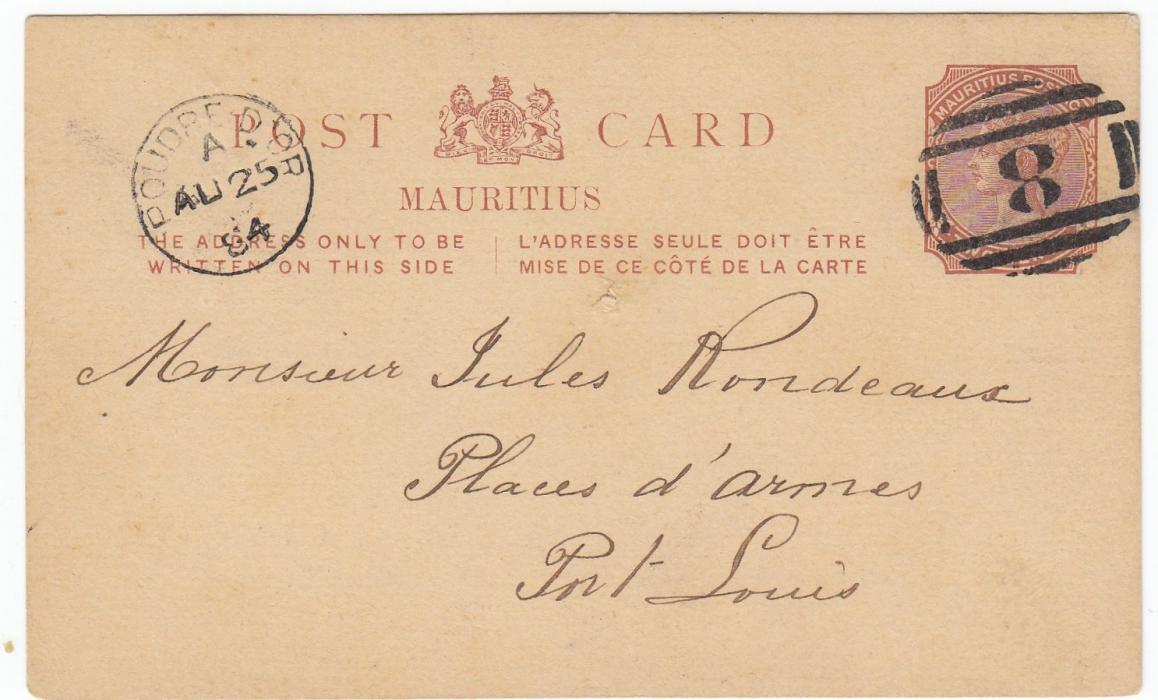 POST CARD
MAURITIUS
THE ADDRESS ONLY TO BE
WRITTEN ON THIS SIDE
L'ADRESSE SEULE DOIT ÊTRE
MISE DE CE CÔTÉ DE LA CARTE
POUDRE D'OR
A
AU 25
84
MAURITIUS
8
Monsieur Jules Rondeaux
Places d'armes
Port Louis